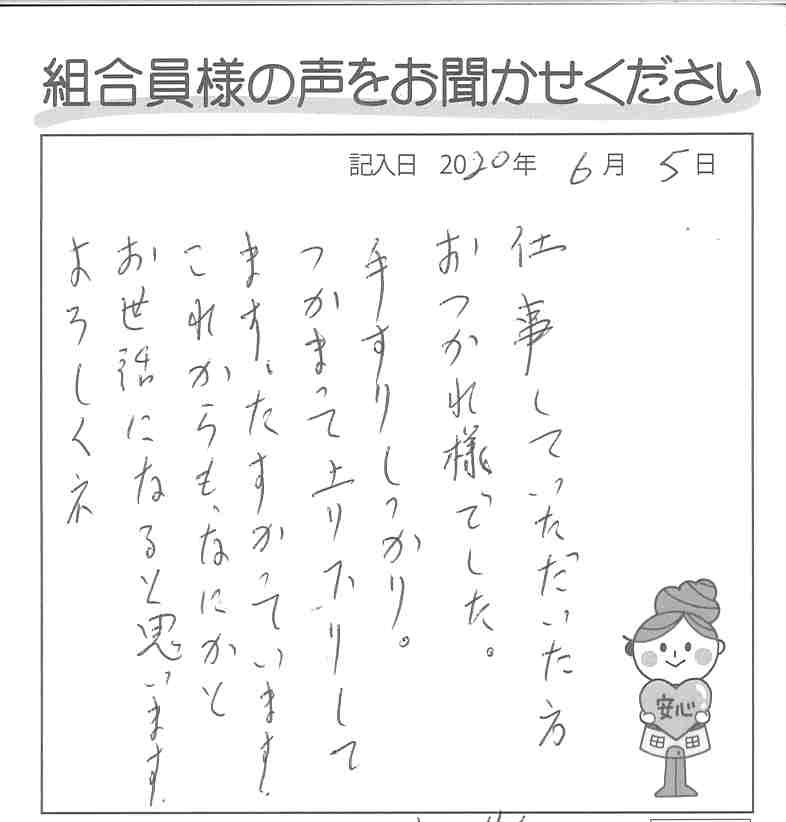 組合員様の声をお聞かせください
記入日 2020年 6月 5日
仕事していっただいた方
おつかれ様でした。
手すりしっかり。
つかまって上り下りして
ます。たすかっています。
これからも、なにかと
お世話になると思います
よろしくネ
安心